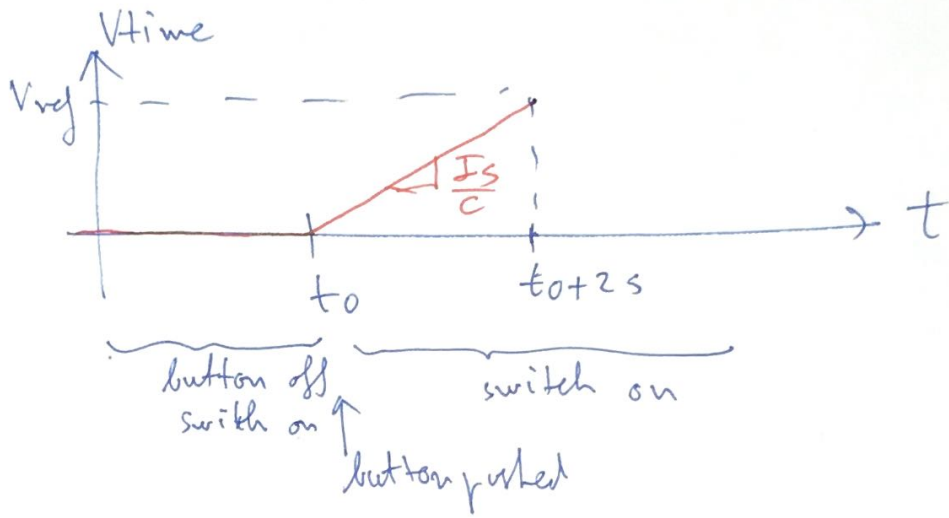 Vtime
Vref
Is
C
t
t0
t0+2s
button off
switch on
switch on
button pushed